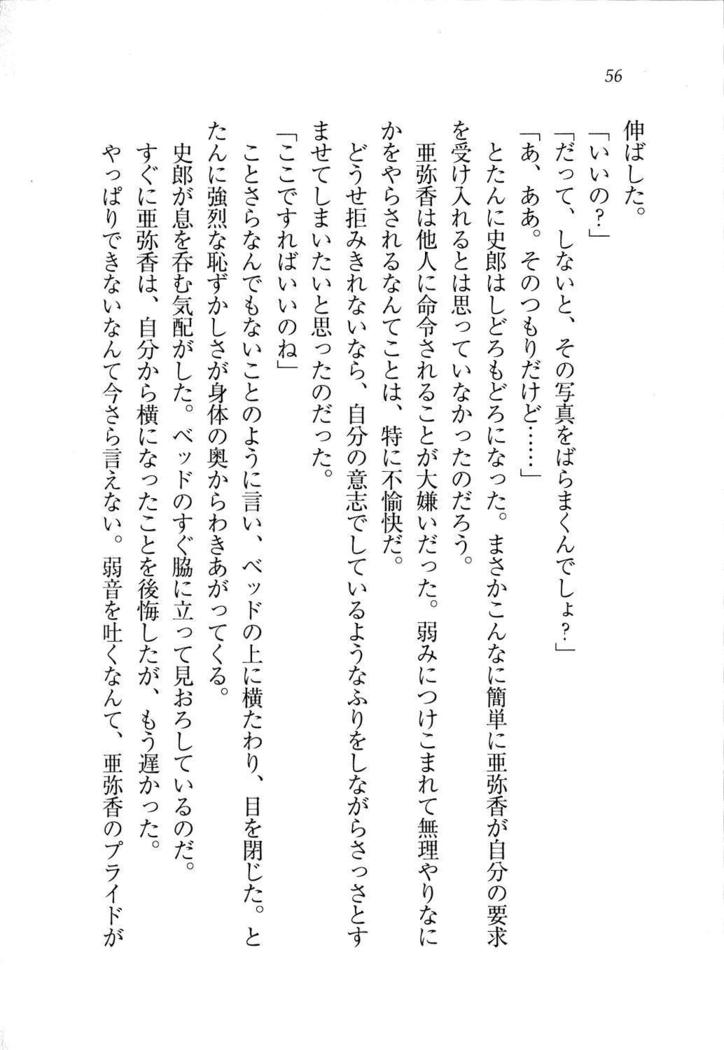 56
伸ばした。
「いいの?」
「だって、しないと、その写真をばらまくんでしょ?」
「あ、ああ。そのつもりだけど……」
とたんに史郎はしどろもどろになった。まさかこんなに簡単に亜弥香が自分の要求
を受け入れるとは思っていなかったのだろう。
亜弥香は他人に命令されることが大嫌いだった。弱みにつけこまれて無理やりなに
かをやらされるなんてことは、特に不愉快だ。
どうせ拒みきれないなら、自分の意志でしているようなふりをしながらさっさとす
ませてしまいたいと思ったのだった。
「ここですればいいのね」
ことさらなんでもないことのように言い、ベッドの上に横たわり、目を閉じた。と
たんに強烈な恥ずかしさが身体の奥からわきあがってくる。
史郎が息を呑む気配がした。ベッドのすぐ脇に立って見おろしているのだ。
すぐに亜弥香は、自分から横になったことを後悔したが、もう遅かった。
やっぱりできないなんて今さら言えない。弱音を吐くなんて、亜弥香のプライドが